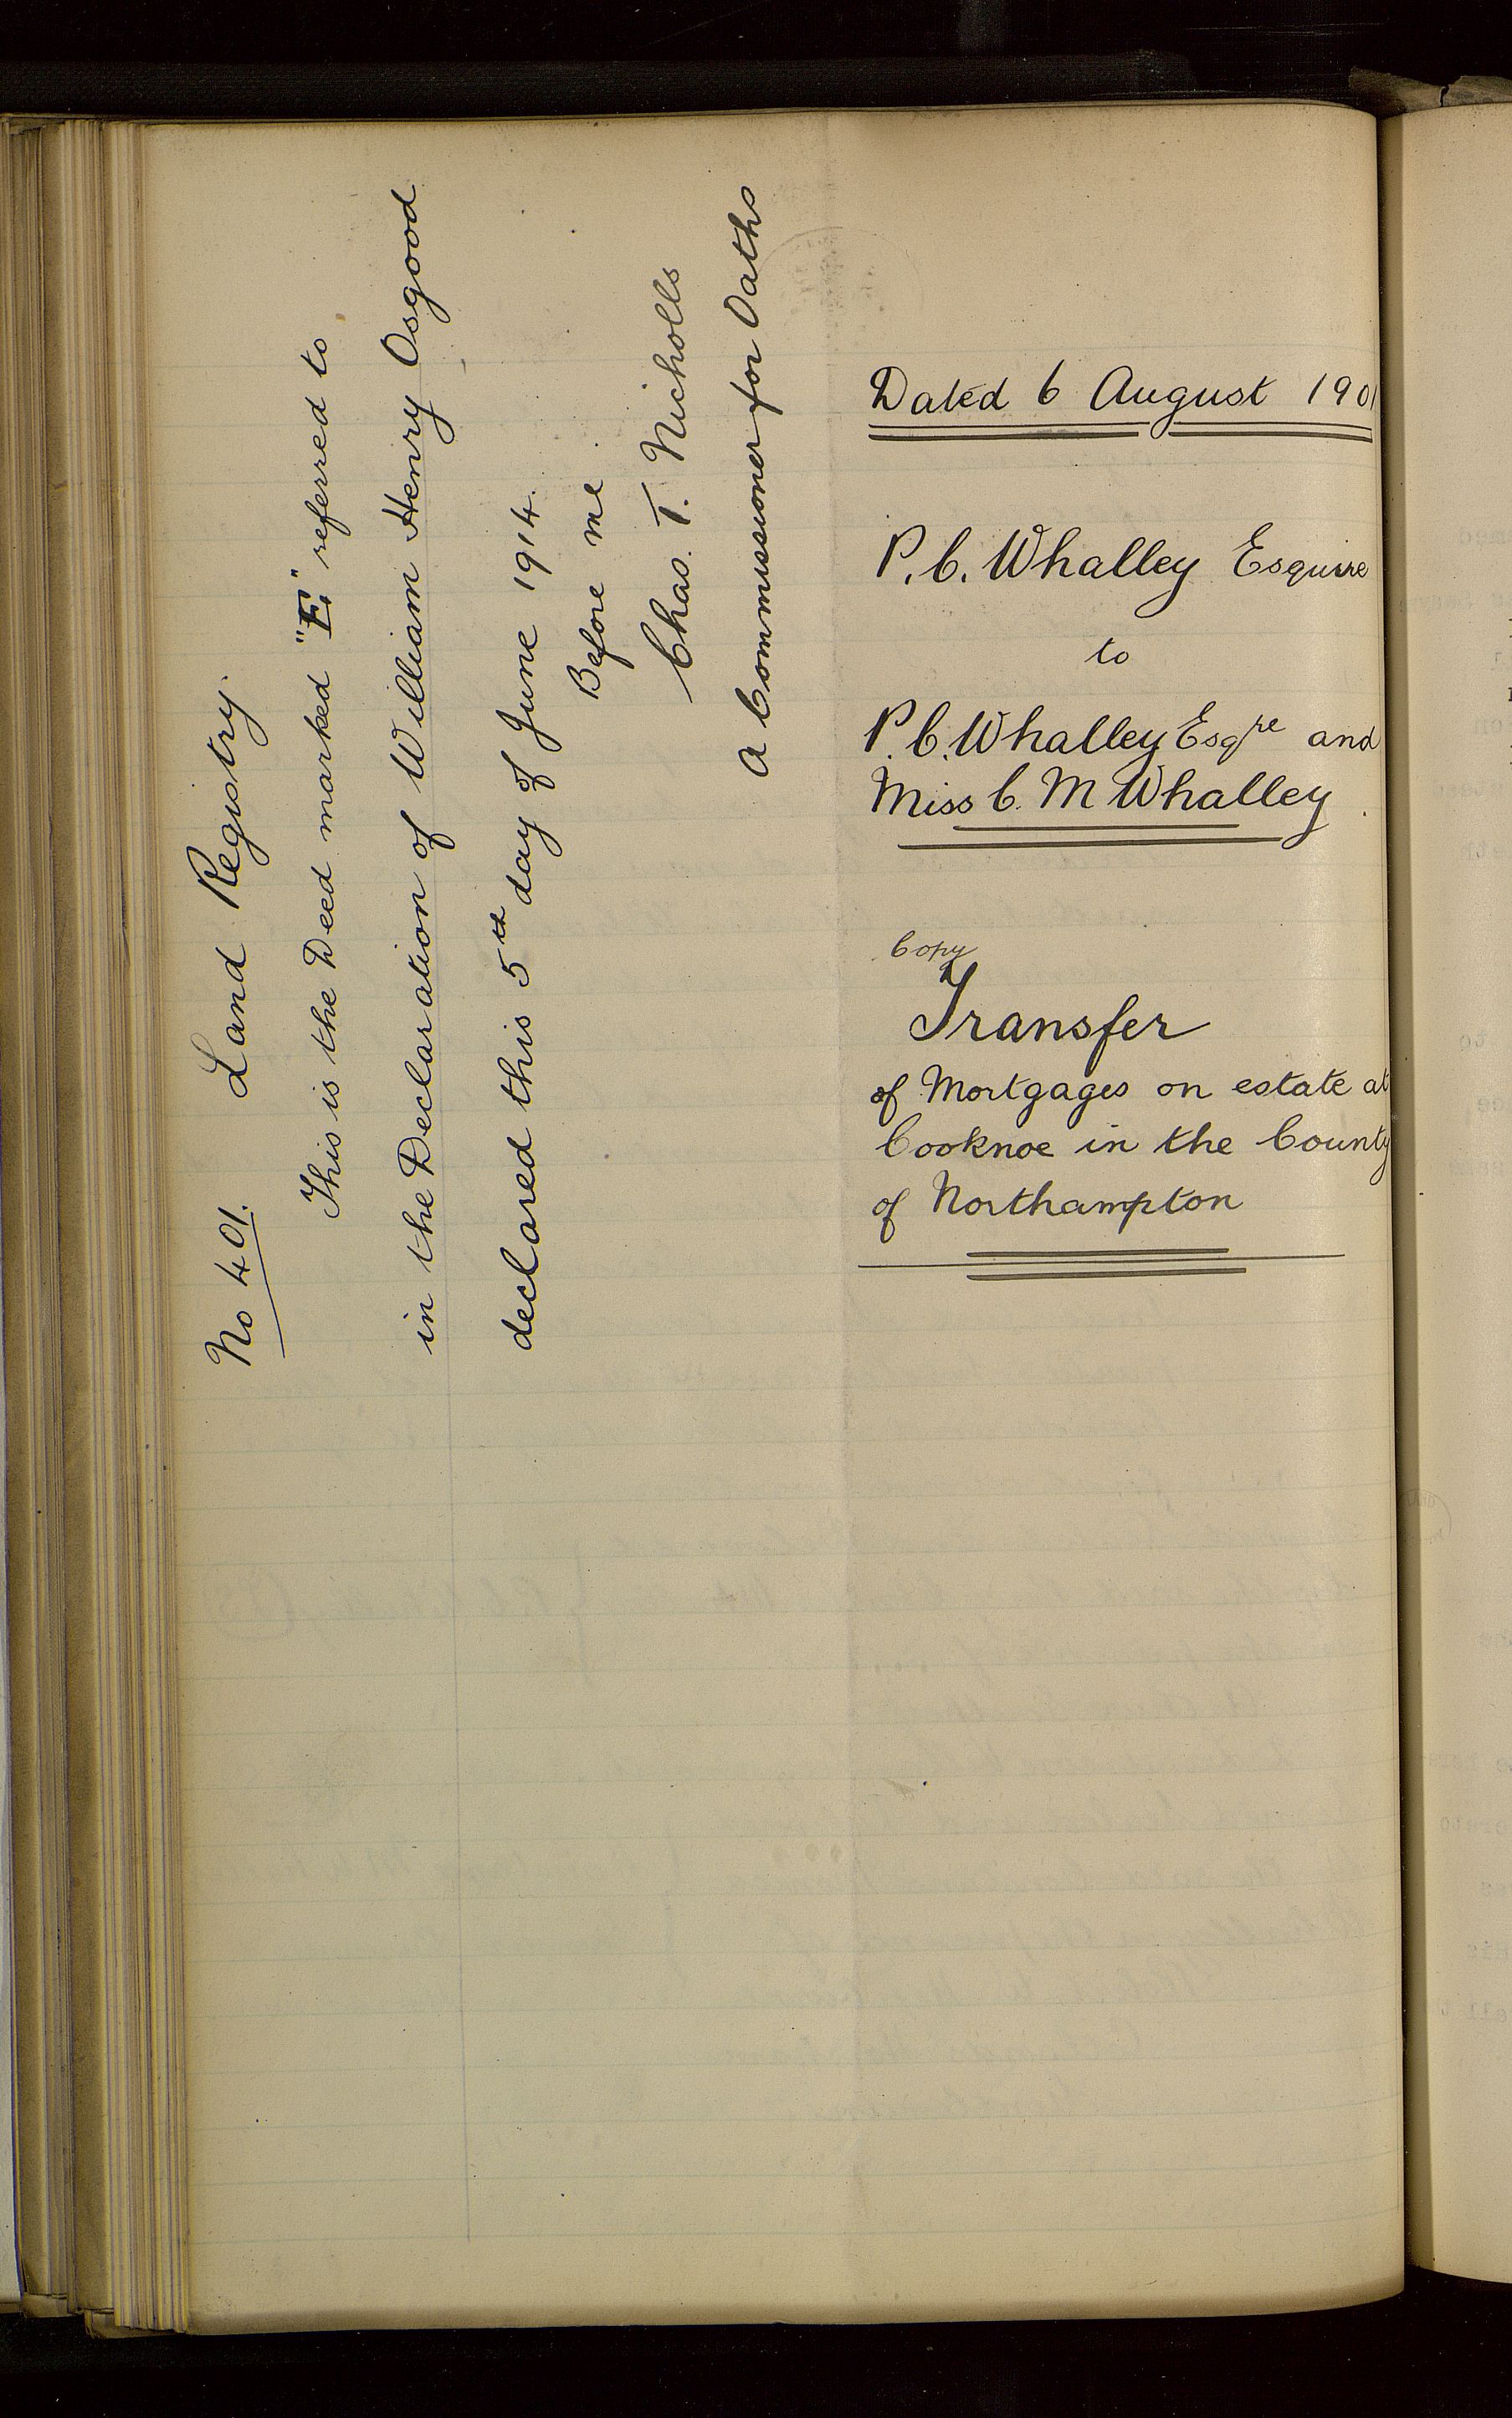 No 401. Land Registry.
This is the Deed marked "E." referred to
in the Declaration of William Henry Osgood
declared this 5th day of June 1914.
Before me
Chas. T. Nicholls
A Commissioner for Oaths
Dated 6 August 1901
P. C. Whalley Esquire
to
P. C. Whalley Esqre and
Miss C. M Whalley
Copy
Transfer
of Mortgages on estate at
Cooknoe in the County
of Northampton